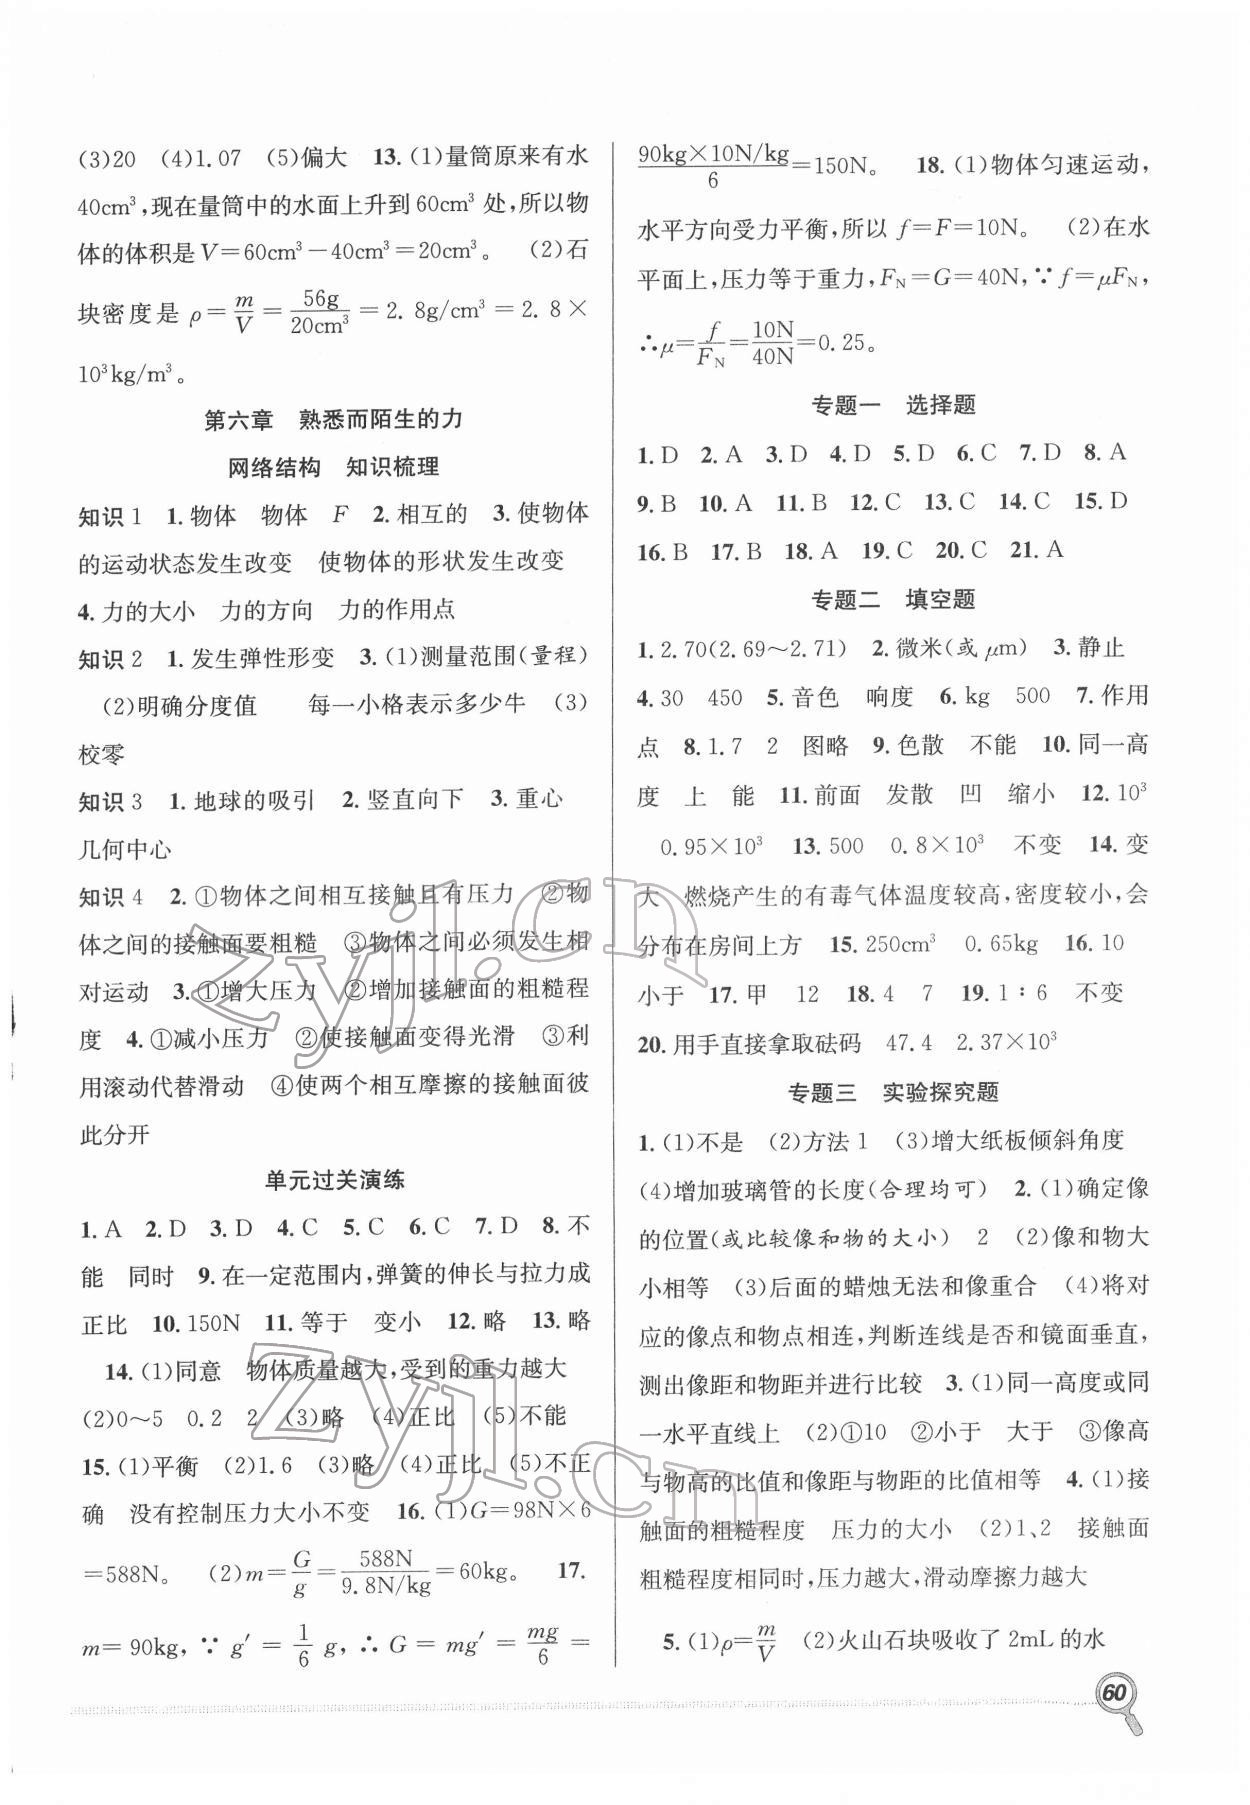 (3)20 (4)1.07 (5)偏大 13.(1)量筒原来有水
40cm³,现在量筒中的水面上升到60cm³处,所以物
体的体积是V=60cm³-40cm³=20cm³。 (2)石
块密度是 ρ=m/V=56g/20cm³=2.8g/cm³=2.8×
10³kg/m³。
第六章 熟悉而陌生的力
网络结构 知识梳理
知识1 1.物体 物体 F 2.相互的 3.使物体
的运动状态发生改变 使物体的形状发生改变
4.力的大小 力的方向 力的作用点
知识2 1.发生弹性形变 3.(1)测量范围(量程)
(2)明确分度值 每一小格表示多少牛 (3)
校零
知识3 1.地球的吸引 2.竖直向下 3.重心
几何中心
知识4 2.①物体之间相互接触且有压力 ②物
体之间的接触面要粗糙 ③物体之间必须发生相
对运动 3.①增大压力 ②增加接触面的粗糙程
度 4.①减小压力 ②使接触面变得光滑 ③利
用滚动代替滑动 ④使两个相互摩擦的接触面彼
此分开
单元过关演练
1.A 2.D 3.D 4.C 5.C 6.C 7.D 8.不
能 同时 9.在一定范围内,弹簧的伸长与拉力成
正比 10.150N 11.等于 变小 12.略 13.略
14.(1)同意 物体质量越大,受到的重力越大
(2)0～5 0.2 2 (3)略 (4)正比 (5)不能
15.(1)平衡 (2)1.6 (3)略 (4)正比 (5)不正
确 没有控制压力大小不变 16.(1)G=98N×6
=588N。 (2)m=G/g=588N/9.8N/kg=60kg。 17.
m=90kg,∵g′=1/6 g,∴G=mg′=mg/6=
90kg×10N/kg/6=150N。 18.(1)物体匀速运动,
水平方向受力平衡,所以 f=F=10N。 (2)在水
平面上,压力等于重力,FN=G=40N,∵f=μFN,
∴μ=f/FN=10N/40N=0.25。
专题一 选择题
1.D 2.A 3.D 4.D 5.D 6.C 7.D 8.A
9.B 10.A 11.B 12.C 13.C 14.C 15.D
16.B 17.B 18.A 19.C 20.C 21.A
专题二 填空题
1.2.70(2.69～2.71) 2.微米(或μm) 3.静止
4.30 450 5.音色 响度 6.kg 500 7.作用
点 8.1.7 2 图略 9.色散 不能 10.同一高
度 上 能 11.前面 发散 凹 缩小 12.10³
0.95×10³ 13.500 0.8×10³ 不变 14.变
大 燃烧产生的有毒气体温度较高,密度较小,会
分布在房间上方 15.250cm³ 0.65kg 16.10
小于 17.甲 12 18.4 7 19.1∶6 不变
20.用手直接拿取砝码 47.4 2.37×10³
专题三 实验探究题
1.(1)不是 (2)方法1 (3)增大纸板倾斜角度
(4)增加玻璃管的长度(合理均可) 2.(1)确定像
的位置(或比较像和物的大小) 2 (2)像和物大
小相等 (3)后面的蜡烛无法和像重合 (4)将对
应的像点和物点相连,判断连线是否和镜面垂直,
测出像距和物距并进行比较 3.(1)同一高度或同
一水平直线上 (2)①10 ②小于 大于 ③像高
与物高的比值和像距与物距的比值相等 4.(1)接
触面的粗糙程度 压力的大小 (2)1、2 接触面
粗糙程度相同时,压力越大,滑动摩擦力越大
5.(1)ρ=m/V (2)火山石块吸收了2mL的水
60
zyjl.cn
zyjl.cn